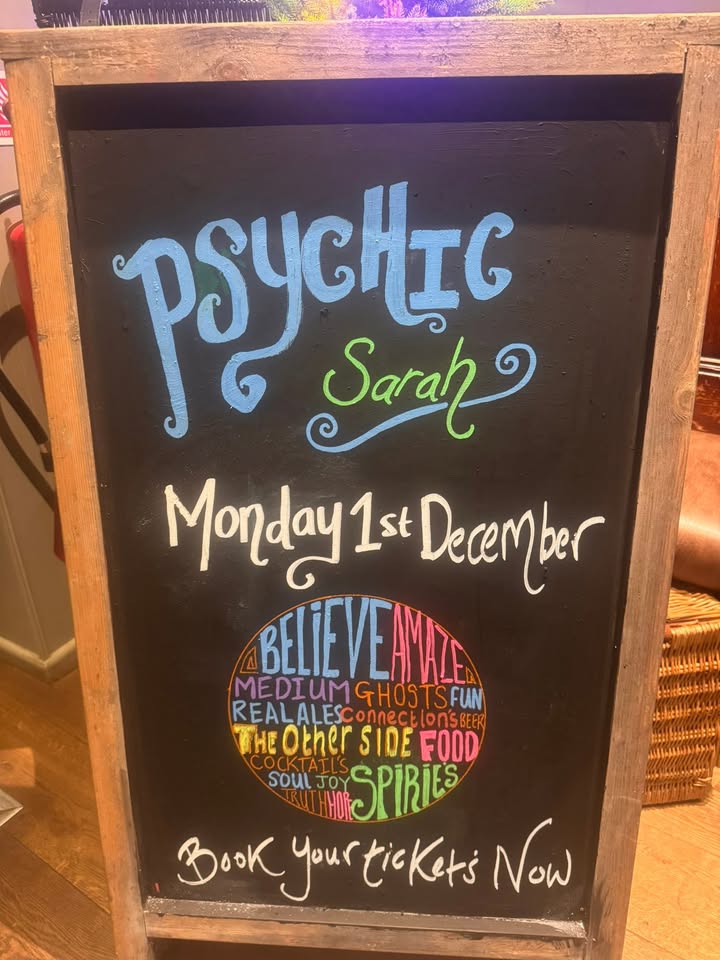 PSYCHIC
Sarah
Monday 1st December
BELIEVE AMAZE
MEDIUM GHOSTS FUN
REAL ALES Connection's BEER
THE Other SIDE FOOD
COCKTAIL'S
SOUL JOY SPIRIE'S
TRUTH HOPE
Book Your ticket's Now